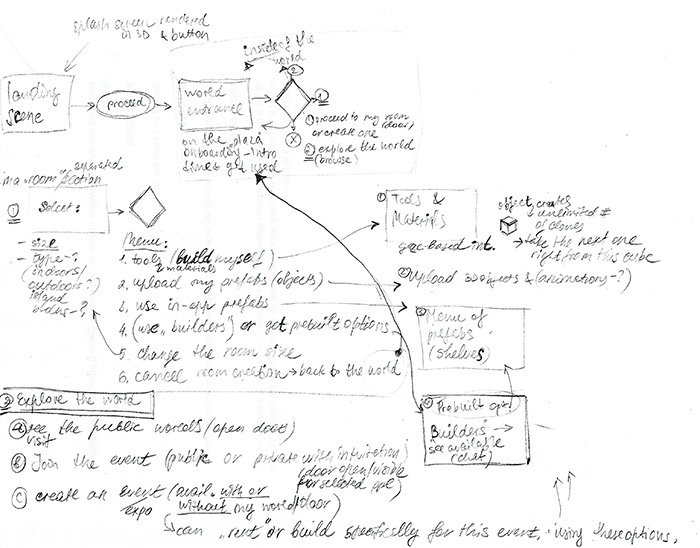 splash screen rendered
in 3D & button
landing
scene
proceed
world
entrance
inside of the
world
2
1
X
① proceed to my room
(door)
or create one
② explore the world
(browse)
on the "plaza"
onboarding - intro
time get used
in a "room"/section
separated
1
Select:
- size
- type-?
(indoors/
outdoors?
island
Menu:
1. tools (build myself)
& materials
2. upload my prefabs (objects)
3. use in-app prefabs
4. (use "builders") or get prebuilt options
5. change the room size
6. cancel room creation → back to the world
① Tools &
Materials
gaze-based int.
object creates
unlimited #
of clones
→ take the next one
right from this cube
② Upload 3D objects & (animations-?)
③ Menu of
prefabs
(shelves)
④ Prebuilt opt.
"Builders" →
see available
(chat)
② Explore the world
Ⓐ see the public worlds (open doors)
visit
Ⓑ Join the event (public or private with invitation)
(door open/visible
for selected ppl)
Ⓒ create an event (avail. with or
expo without my world/door)
↳ can "rent" or build specifically for this event, using these options,